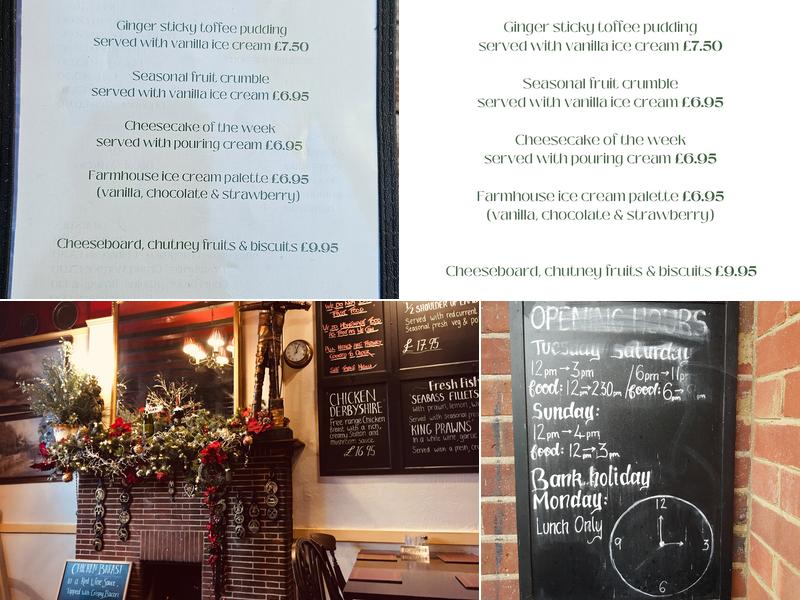 Ginger sticky toffee pudding
served with vanilla ice cream £7.50
Seasonal fruit crumble
served with vanilla ice cream £6.95
Cheesecake of the week
served with pouring cream £6.95
Farmhouse ice cream palette £6.95
(vanilla, chocolate & strawberry)
Cheeseboard, chutney fruits & biscuits £9.95
Ginger sticky toffee pudding
served with vanilla ice cream £7.50
Seasonal fruit crumble
served with vanilla ice cream £6.95
Cheesecake of the week
served with pouring cream £6.95
Farmhouse ice cream palette £6.95
(vanilla, chocolate & strawberry)
Cheeseboard, chutney fruits & biscuits £9.95
½ SHOULDER OF
Served with redcurrent
Seasonal fresh veg & po
£17.95
CHICKEN
DERBYSHIRE
Free range Chicken
Breast with a rich,
creamy Stilton and
mushroom sauce
£16.95
Fresh Fish
SEABASS FILLETS
with prawn, lemon
Served with seasonal
KING PRAWNS
in a white wine, garlic
Served with a fresh
CHICKEN BREAST
in a Red Wine Sauce,
Topped with Crispy Bacon
OPENING HOURS
Tuesday Saturday
12pm→3pm /6pm→11p
food: 12→230pm /food: 6→9pm
Sunday:
12pm→4pm
food: 12→3pm
Bank holiday
Monday:
Lunch Only
12
9 3
6